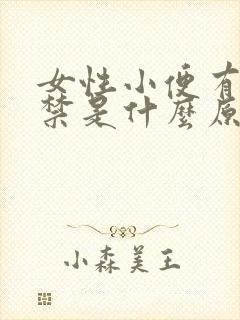 女性小便有
禁是什麼原
小森美王